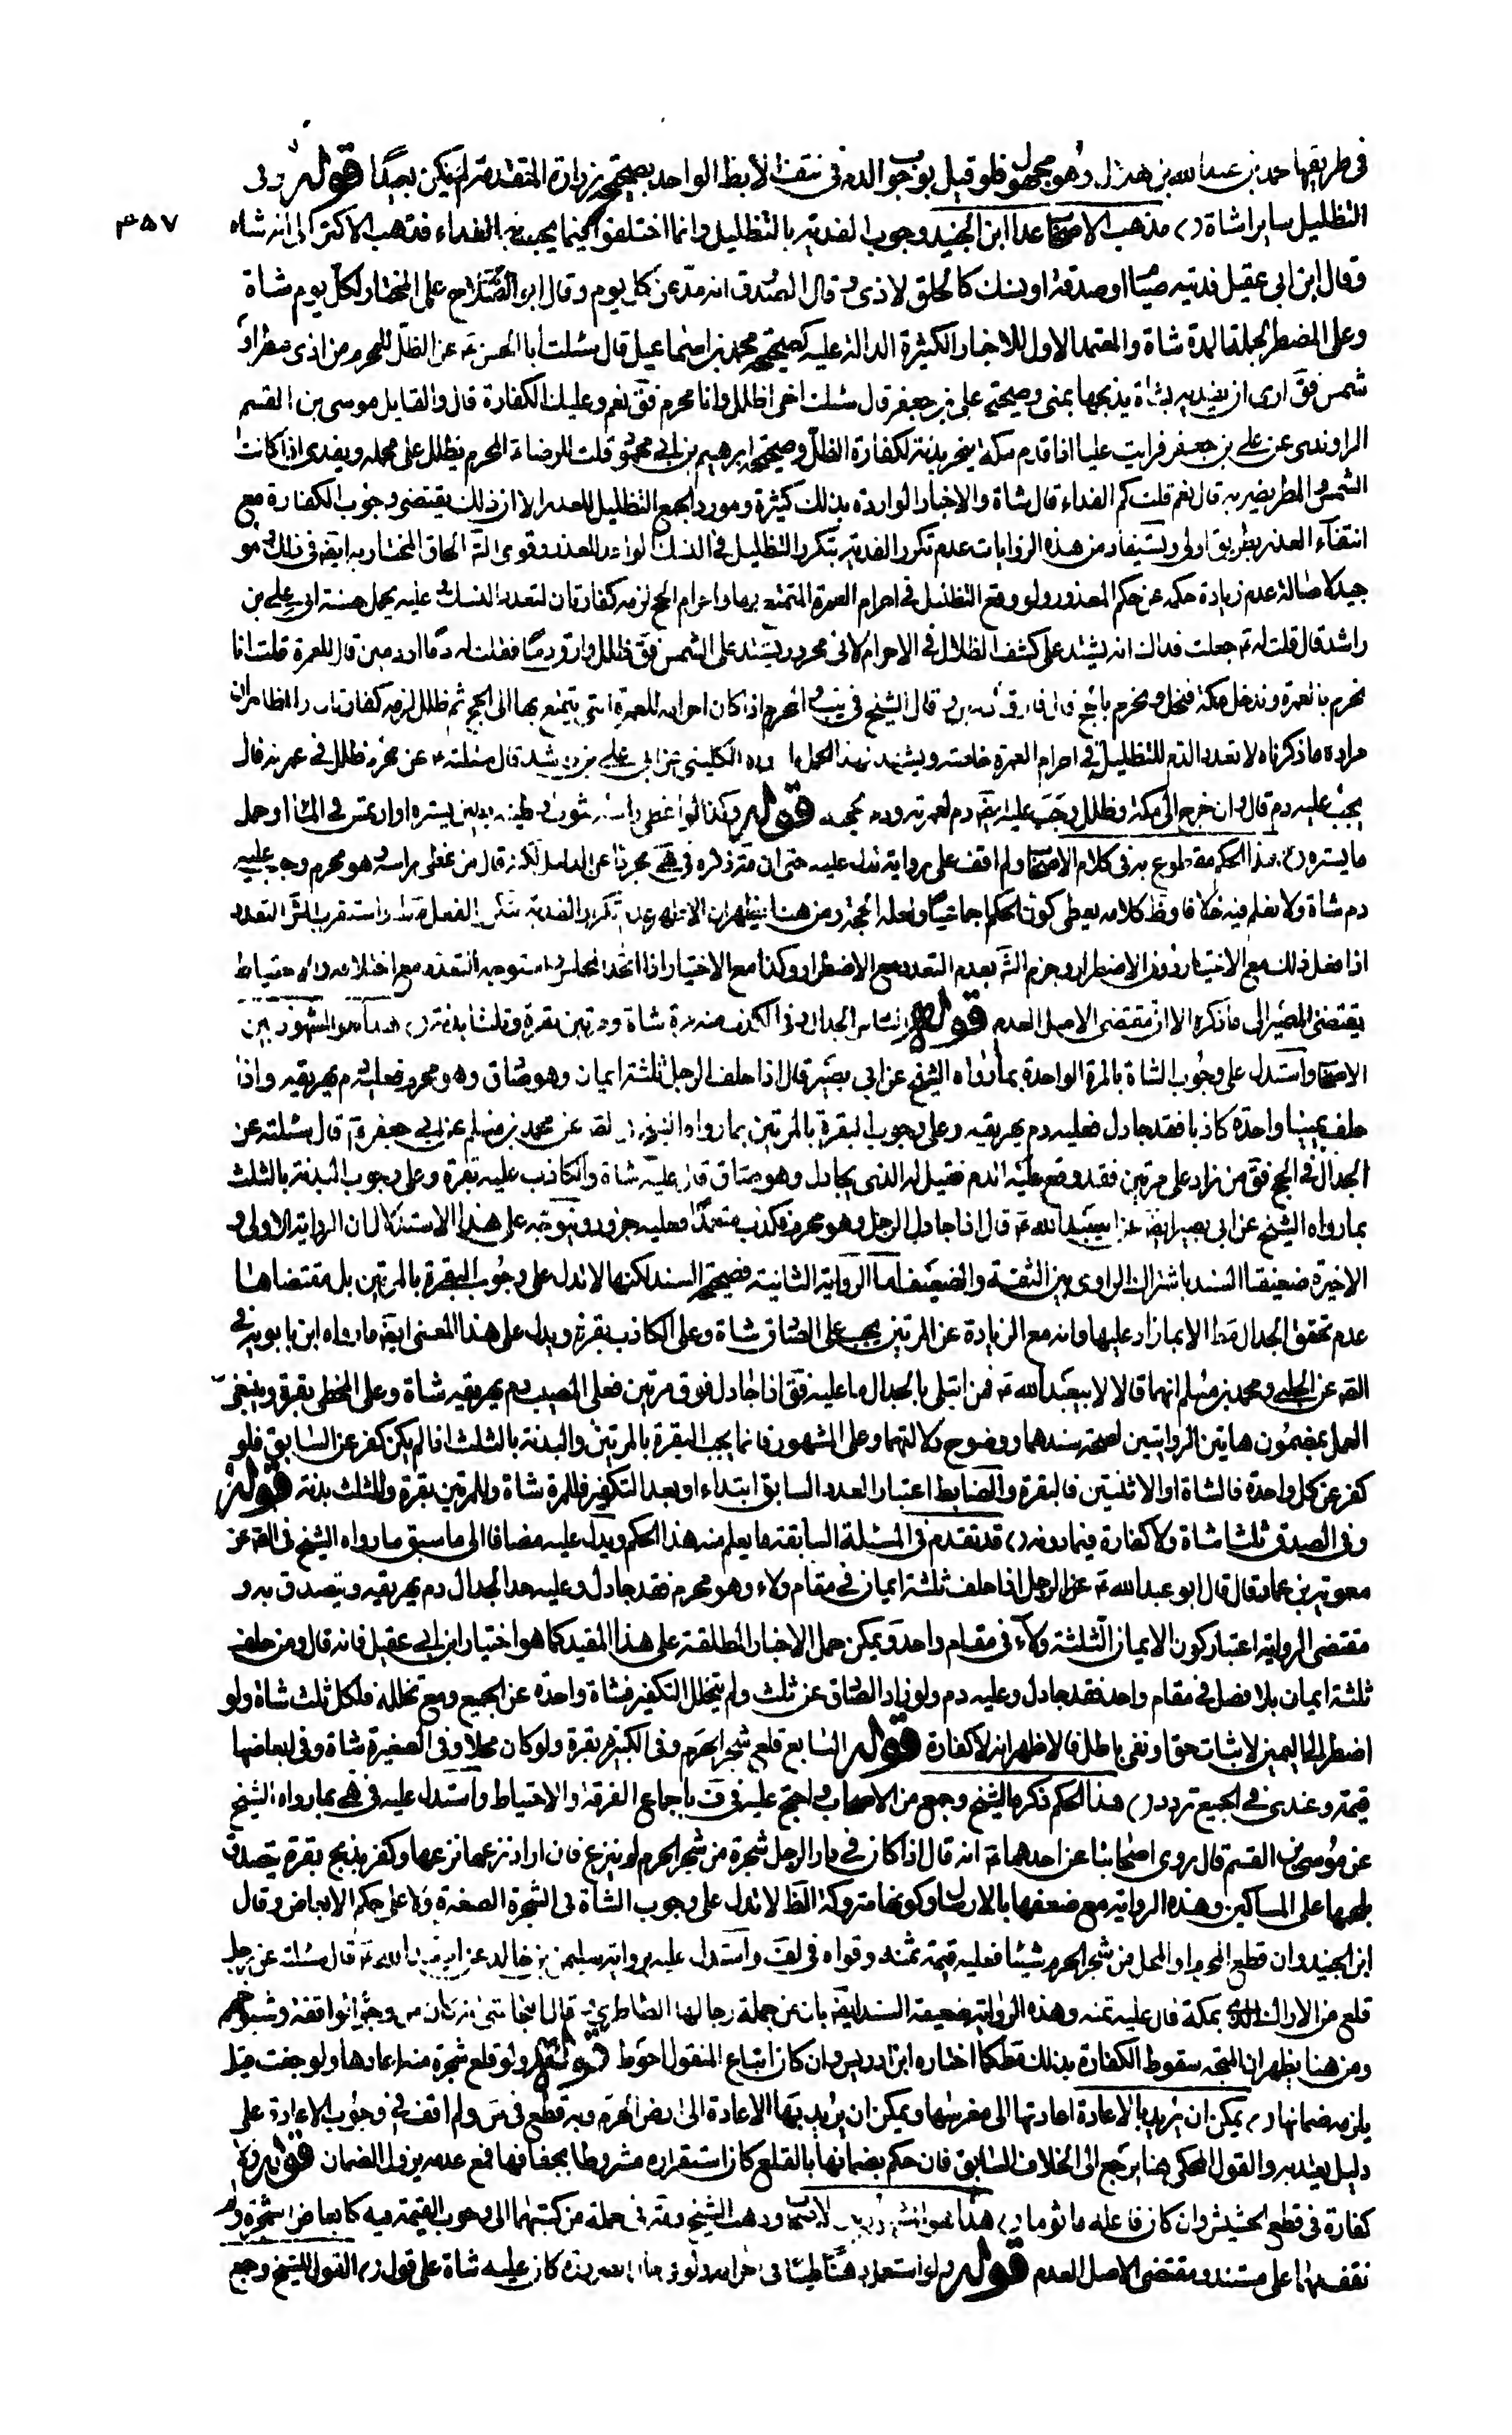 في طريقها محمد بن عبد الله بن هلال وهو مجهول فلو قيل بوجوب الدم في نتف الابط الواحد بصحيحة زرارة المتقدمة لم يكن بعيدا قوله وفي
٣٥٧
التظليل سايرا شاة مذهب الاصحاب عدا ابن الجنيد وجوب الفدية بالتظليل وانما اختلفوا فيما يجب من الفداء فذهب الاكثر الى انه شاة
وقال ابن ابي عقيل فديته صيام او صدقة او نسك كالحلق لاذى وقال الصدوق انه مد عن كل يوم وقال ابو الصلاح على المختار لكل يوم شاة
وعلى المضطر لجملة المدة شاة والمعتمد الاول للاخبار الكثيرة الدالة عليه كصحيحة محمد بن اسماعيل قال سئلت ابا الحسن عن الظل للمحرم من اذى مطر او
شمس فق ارى ان يفديه بشاة يذبحها بمنى وصحيحة علي بن جعفر قال سئلت اخي اظلل وانا محرم فق نعم وعليك الكفارة قال والقايل موسى بن القسم
الراوندى عن علي بن جعفر فرايت عليا اذا قدم مكة ينحر بدنة لكفارة الظل وصحيحة ابرهيم بن ابي محمود قلت للرضا المحرم يظلل على محمله ويفدى اذا كانت
الشمس والمطر يضر به قال نعم قلت كم الفداء قال شاة والاخبار الواردة بذلك كثيرة ومورد الجمع التظليل للعذر الا ان ذلك يقتضى وجوب الكفارة مع
انتفاء العذر بطريق اولى ويستفاد من هذه الروايات عدم تكرر الفدية بتكرر التظليل في النسك الواحد للعذر وقوى الحاق المختار به ايضا في ذلك وهو
جيد لاصالة عدم زيادة حكمه عن حكم المعذور ولو وقع التظليل في احرام العمرة المتمتع بها واحرام الحج لزمه كفارتان لتعدد النسك وعليه يحمل حسنة ابي علي بن
راشد قال قلت له جعلت فداك انه يشتد على كشف الظلال في الاحرام لانى محرور يشتد على الشمس فق ظلل وارق دما فقلت له دما او دمين قال للعمرة قلت انا
نحرم بالعمرة وندخل مكة فنحل ونحرم بالحج قال فارق دمين وقال الشيخ في يب المحرم اذا كان احرامه للعمرة التى يتمتع بها الى الحج ثم ظلل لزمه كفارتان والظاهر ان
مراده ما ذكرناه لا تعدد الدم للتظليل في احرام العمرة خاصة ويشهد لهذا الحمل ما رواه الكليني عن ابي علي بن راشد قال سئلته عن محرم ظلل في عمرته قال
يجب عليه دم قال وان خرج الى مكة وظلل وجب عليه ايضا دم لعمرته ودم لحجته قوله وكذا لو غطى راسه بثوب او طينه بطين يستره او ارتمس في الماء او حمل
ما يستره هذا الحكم مقطوع به في كلام الاصحاب ولم اقف على رواية تدل عليه حتى ان ذكره في هى مجردا عن الدليل لكنه قال من غطى راسه وهو محرم وجب عليه
دم شاة ولا نعلم فيه خلافا وظ كلامه يعطى كون الحكم اجماعيا ولعله الحجة ومن هنا يظهر ان الاظهر عدم تكرر الفدية بتكرر الفعل واستقرب التعدد
اذا فعل ذلك مع الاختيار دون الاضطرار وجزم بعدم التعدد مع الاضطرار وكذا مع الاختيار اذا اتحد المجلس واستوجه التعدد مع اختلافه والاحتياط
يقتضى المصير الى ما ذكره الا ان مقتضى الاصل العدم قوله السادس الجدال وفي الكذب منه مرة شاة ومرتين بقرة وثلثا بدنة هذا هو المشهور بين
الاصحاب واستدل على وجوب الشاة بالمرة الواحدة بما رواه الشيخ عن ابي بصير قال اذا حلف الرجل ثلثة ايمان وهو صادق وهو محرم فعليه دم يهريقه واذا
حلف يمينا واحدة كاذبا فقد جادل فعليه دم يهريقه وعلى وجوب البقرة بالمرتين بما رواه الشيخ عن محمد بن مسلم عن ابي جعفر قال سئلته عن
الجدال في الحج فق من زاد على مرتين فقد وقع عليه الدم فقيل له الذى يجادل وهو صادق قال عليه شاة والكاذب عليه بقرة وعلى وجوب البدنة بالثلث
بما رواه الشيخ عن ابي بصير ايضا عن ابيعبد الله قال اذا جادل الرجل وهو محرم فكذب متعمدا فعليه جزور ويتوجه على هذا الاستدلال ان الرواية الاولى و
الاخيرة ضعيفتا السند باشتراك الراوى بين الثقة والضعيف اما الرواية الثانية فصحيحة السند لكنها لا تدل على وجوب البقرة بالمرتين بل مقتضاها
عدم تحقق الجدال مط الا بما زاد عليها وانه مع الزيادة عن المرتين يجب على الصادق شاة وعلى الكاذب بقرة ويدل على هذا المعنى ايضا ما رواه ابن بابويه في
عن الحلبي ومحمد بن مسلم انهما قالا لابيعبد الله فمن ابتلى بالجدال ما عليه فق اذا جادل فوق مرتين فعلى المصيب دم يهريقه شاة وعلى المخطى بقرة وينبغى
العمل بمضمون هاتين الروايتين لصحة سندهما ووضوح دلالتهما وعلى المشهور فانما يجب البقرة بالمرتين والبدنة بالثلث اذا لم يكن كفر عن السابق فلو
كفر عن كل واحدة فالشاة او الاثنتين فالبقرة والضابط اعتبار العدد السابق ابتداء او بعد التكفير فللمرة شاة وللمرتين بقرة وللثلث بدنة قوله
وفي الصدق ثلثا شاة ولا كفارة فيما دونه قد تقدم في المسئلة السابقة ما يعلم منه هذا الحكم ويدل عليه مضافا الى ما سبق ما رواه الشيخ في عن
معوية بن عمار قال قال ابو عبد الله عن الرجل اذا حلف ثلثة ايمان في مقام ولاء وهو محرم فقد جادل وعليه حد الجدال دم يهريقه ويتصدق به و
مقتضى الرواية اعتبار كون الايمان الثلثة ولاء في مقام واحد ويمكن حمل الاخبار المطلقة على هذا المقيد كما هو اختيار ابن ابي عقيل فانه قال ومن حلف
ثلثة ايمان بلا فصل في مقام واحد فقد جادل وعليه دم ولو زاد الصادق عن ثلث ولم يتخلل التكفير فشاة واحدة عن الجميع ومع تخلله فلكل ثلث شاة ولو
اضطر الى اليمين لاثبات حق او نفى باطل فالاظهر انه لا كفارة قوله السابع قلع شجر الحرم وفي الكبيرة بقرة ولو كان محلا وفي الصغيرة شاة وفي ابعاضها
قيمة وعندى في الجميع تردد هذا الحكم ذكره الشيخ وجمع من الاصحاب واحتج عليه في ف باجماع الفرقة والاحتياط واستدل عليه في هى بما رواه الشيخ
عن موسى بن القسم قال روى اصحابنا عن احدهما انه قال اذا كان في دار الرجل شجرة من شجر الحرم لم ينزع فان اراد نزعها نزعها وكفر بذبح بقرة يتصدق
بلحمها على المساكين وهذه الرواية مع ضعفها بالارسال وكونها متروكة الظ لا تدل على وجوب الشاة في الشجرة الصغيرة ولا على حكم الابعاض وقال
ابن الجنيد وان قطع المحرم او المحل من شجر الحرم شيئا فعليه قيمة ثمنه وقواه في لف واستدل عليه برواية سليمن بن خالد عن ابيعبد الله قال سئلته عن رجل
قلع من الاراك الذى بمكة قال عليه ثمنه وهذه الرواية ضعيفة السند ايضا بان من جملة رجالها الطاطرى قال النجاشى انه كان من وجوه الواقفة وشيوخهم
ومن هنا يظهر ان المتجه سقوط الكفارة بذلك مط كما اختاره ابن ادريس وان كان اتباع المنقول احوط قوله ولو قلع شجرة منه اعادها ولو جفت قيل
يلزمه ضمانها يمكن ان يريد بالاعادة اعادتها الى مغرسها ويمكن ان يريد بها الاعادة الى ارض الحرم وبه قطع في س ولم اقف في وجوب الاعادة على
دليل يعتد به والقول المحكى هنا يرجع الى الخلاف السابق فان حكم بضمانها بالقلع كان استقراره مشروطا بجفافها فمع عدمه يزول الضمان قوله ولا
كفارة في قطع الحشيش وان كان فاعله ماثوما هذا هو المشهور بين الاصحاب وذهب الشيخ في جملة من كتبهما الى وجوب القيمة فيه كابعاض الشجرة ولم
نقف لهما على مستند ومقتضى الاصل العدم قوله ولو استعمل دهنا طيبا في احرامه ولو في حال الضرورة كان عليه شاة على قول القول للشيخ وجمع